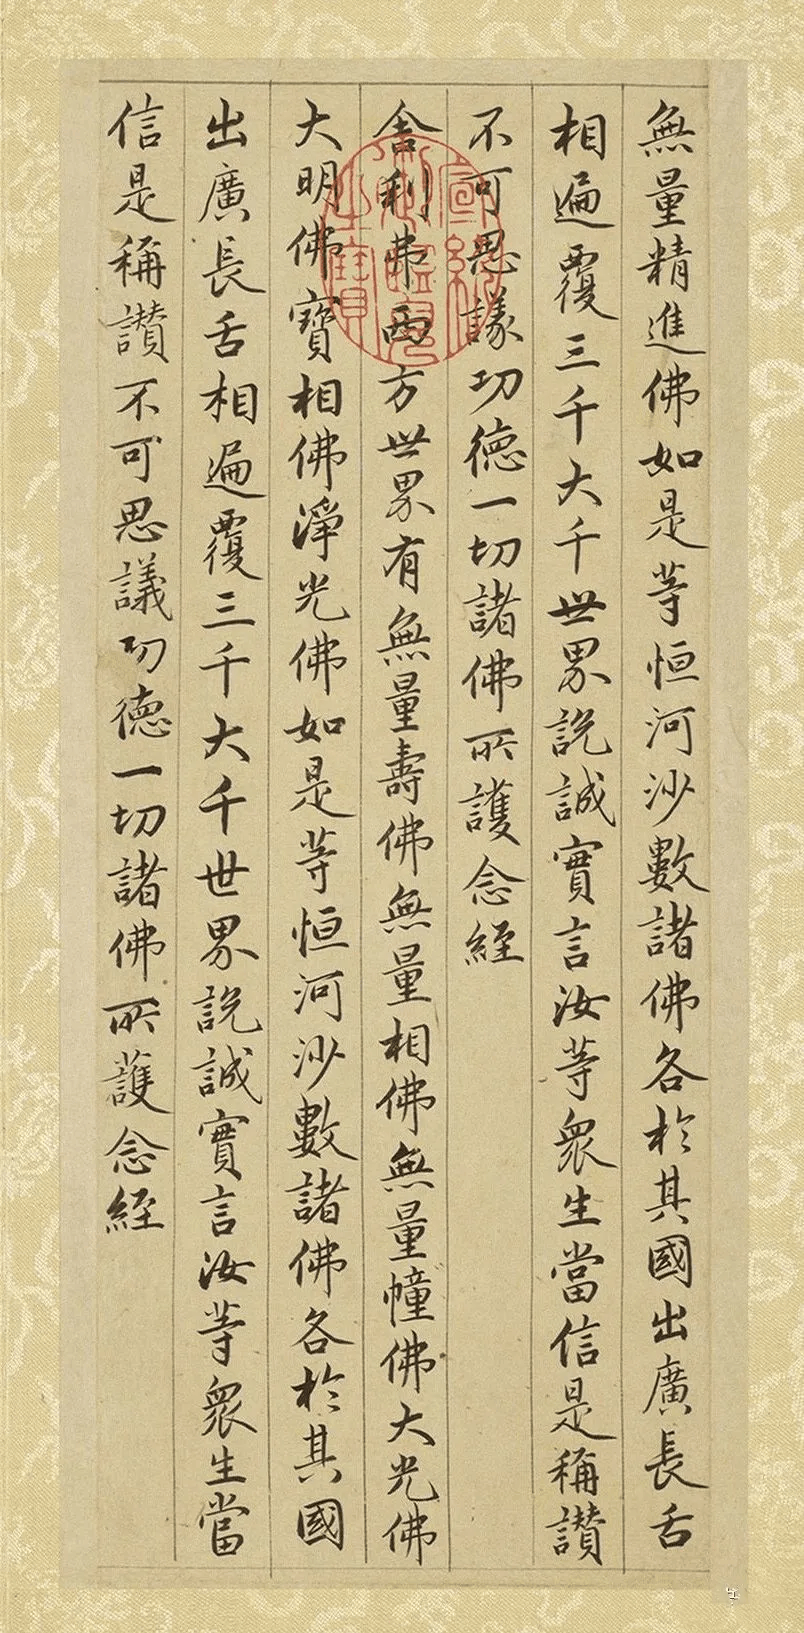 無量精進佛如是等恒河沙數諸佛各於其國出廣長舌
相遍覆三千大千世界說誠實言汝等衆生當信是稱讚
不可思議功德一切諸佛所護念經
舍利弗西方世界有無量壽佛無量相佛無量幢佛大光佛
大明佛寶相佛淨光佛如是等恒河沙數諸佛各於其國
出廣長舌相遍覆三千大千世界說誠實言汝等衆生當
信是稱讚不可思議功德一切諸佛所護念經
宣統御覽之寶